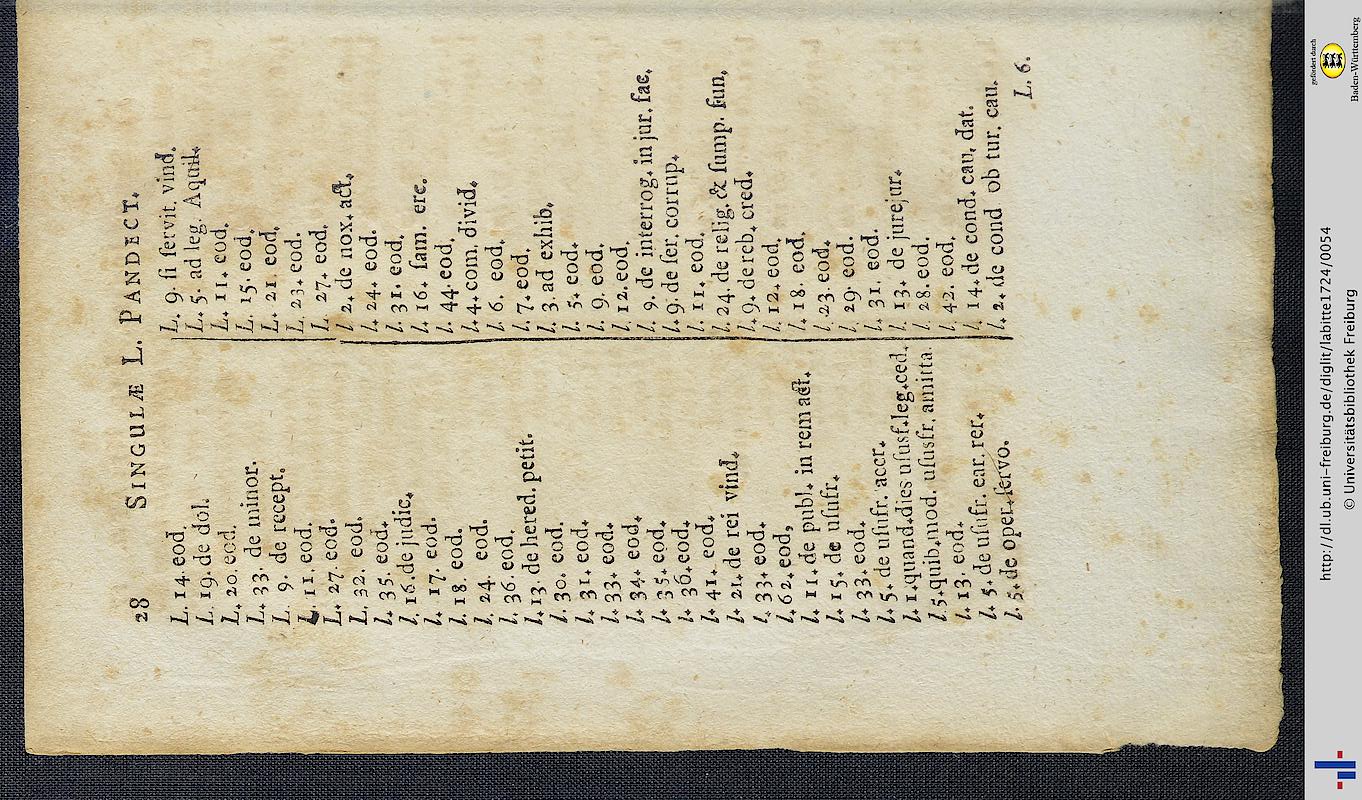 28 SINGULÆ L. PANDECT.
L. 14. eod.
L. 19. de dol.
L. 20. eod.
L. 33. de minor.
L. 9. de recept.
L. 11. eod.
L. 27. eod.
L. 32. eod.
l. 35. eod.
l. 16. de judic.
l. 17. eod.
l. 18. eod.
l. 24. eod.
l. 36. eod.
l. 13. de hered. petit.
l. 30. eod.
l. 31. eod.
l. 33. eod.
l. 34. eod.
l. 35. eod.
l. 36. eod.
l. 41. eod.
l. 21. de rei vind.
l. 33. eod.
l. 62. eod,
l. 11. de publ. in rem act.
l. 15. de uſufr.
l. 33. eod.
l. 5. de uſufr. accr.
l. 1. quand. dies uſusf. leg. ced.
l. 5. quib. mod. uſusfr. amitta.
l. 13. eod.
l. 5. de uſufr. ear. rer.
l. 5. de oper. ſervo.
L. 9. ſi ſervit. vind.
L. 5. ad leg. Aquil.
L. 11. eod.
L. 15. eod.
L. 21. eod.
L. 23. eod.
L. 27. eod.
l. 2. de nox. act.
l. 24. eod.
l. 31. eod.
l. 16. fam. erc.
l. 44. eod.
l. 4. com. divid.
l. 6. eod.
l. 7. eod.
l. 3. ad exhib.
l. 5. eod.
l. 9. eod.
l. 12. eod.
l. 9. de interrog. in jur. fac.
l. 9. de ſer. corrup.
l. 11. eod.
l. 24. de relig. & ſump. fun.
l. 9. de reb. cred.
l. 12. eod.
l. 18. eod.
l. 23. eod.
l. 29. eod.
l. 31. eod.
l. 13. de jurejur.
l. 28. eod.
l. 42. eod.
l. 14. de cond. cau. dat.
l. 2. de cond ob tur. cau.
L. 6.
http://dl.ub.uni-freiburg.de/diglit/labitte1724/0054
© Universitätsbibliothek Freiburg
gefördert durch
Baden-Württemberg